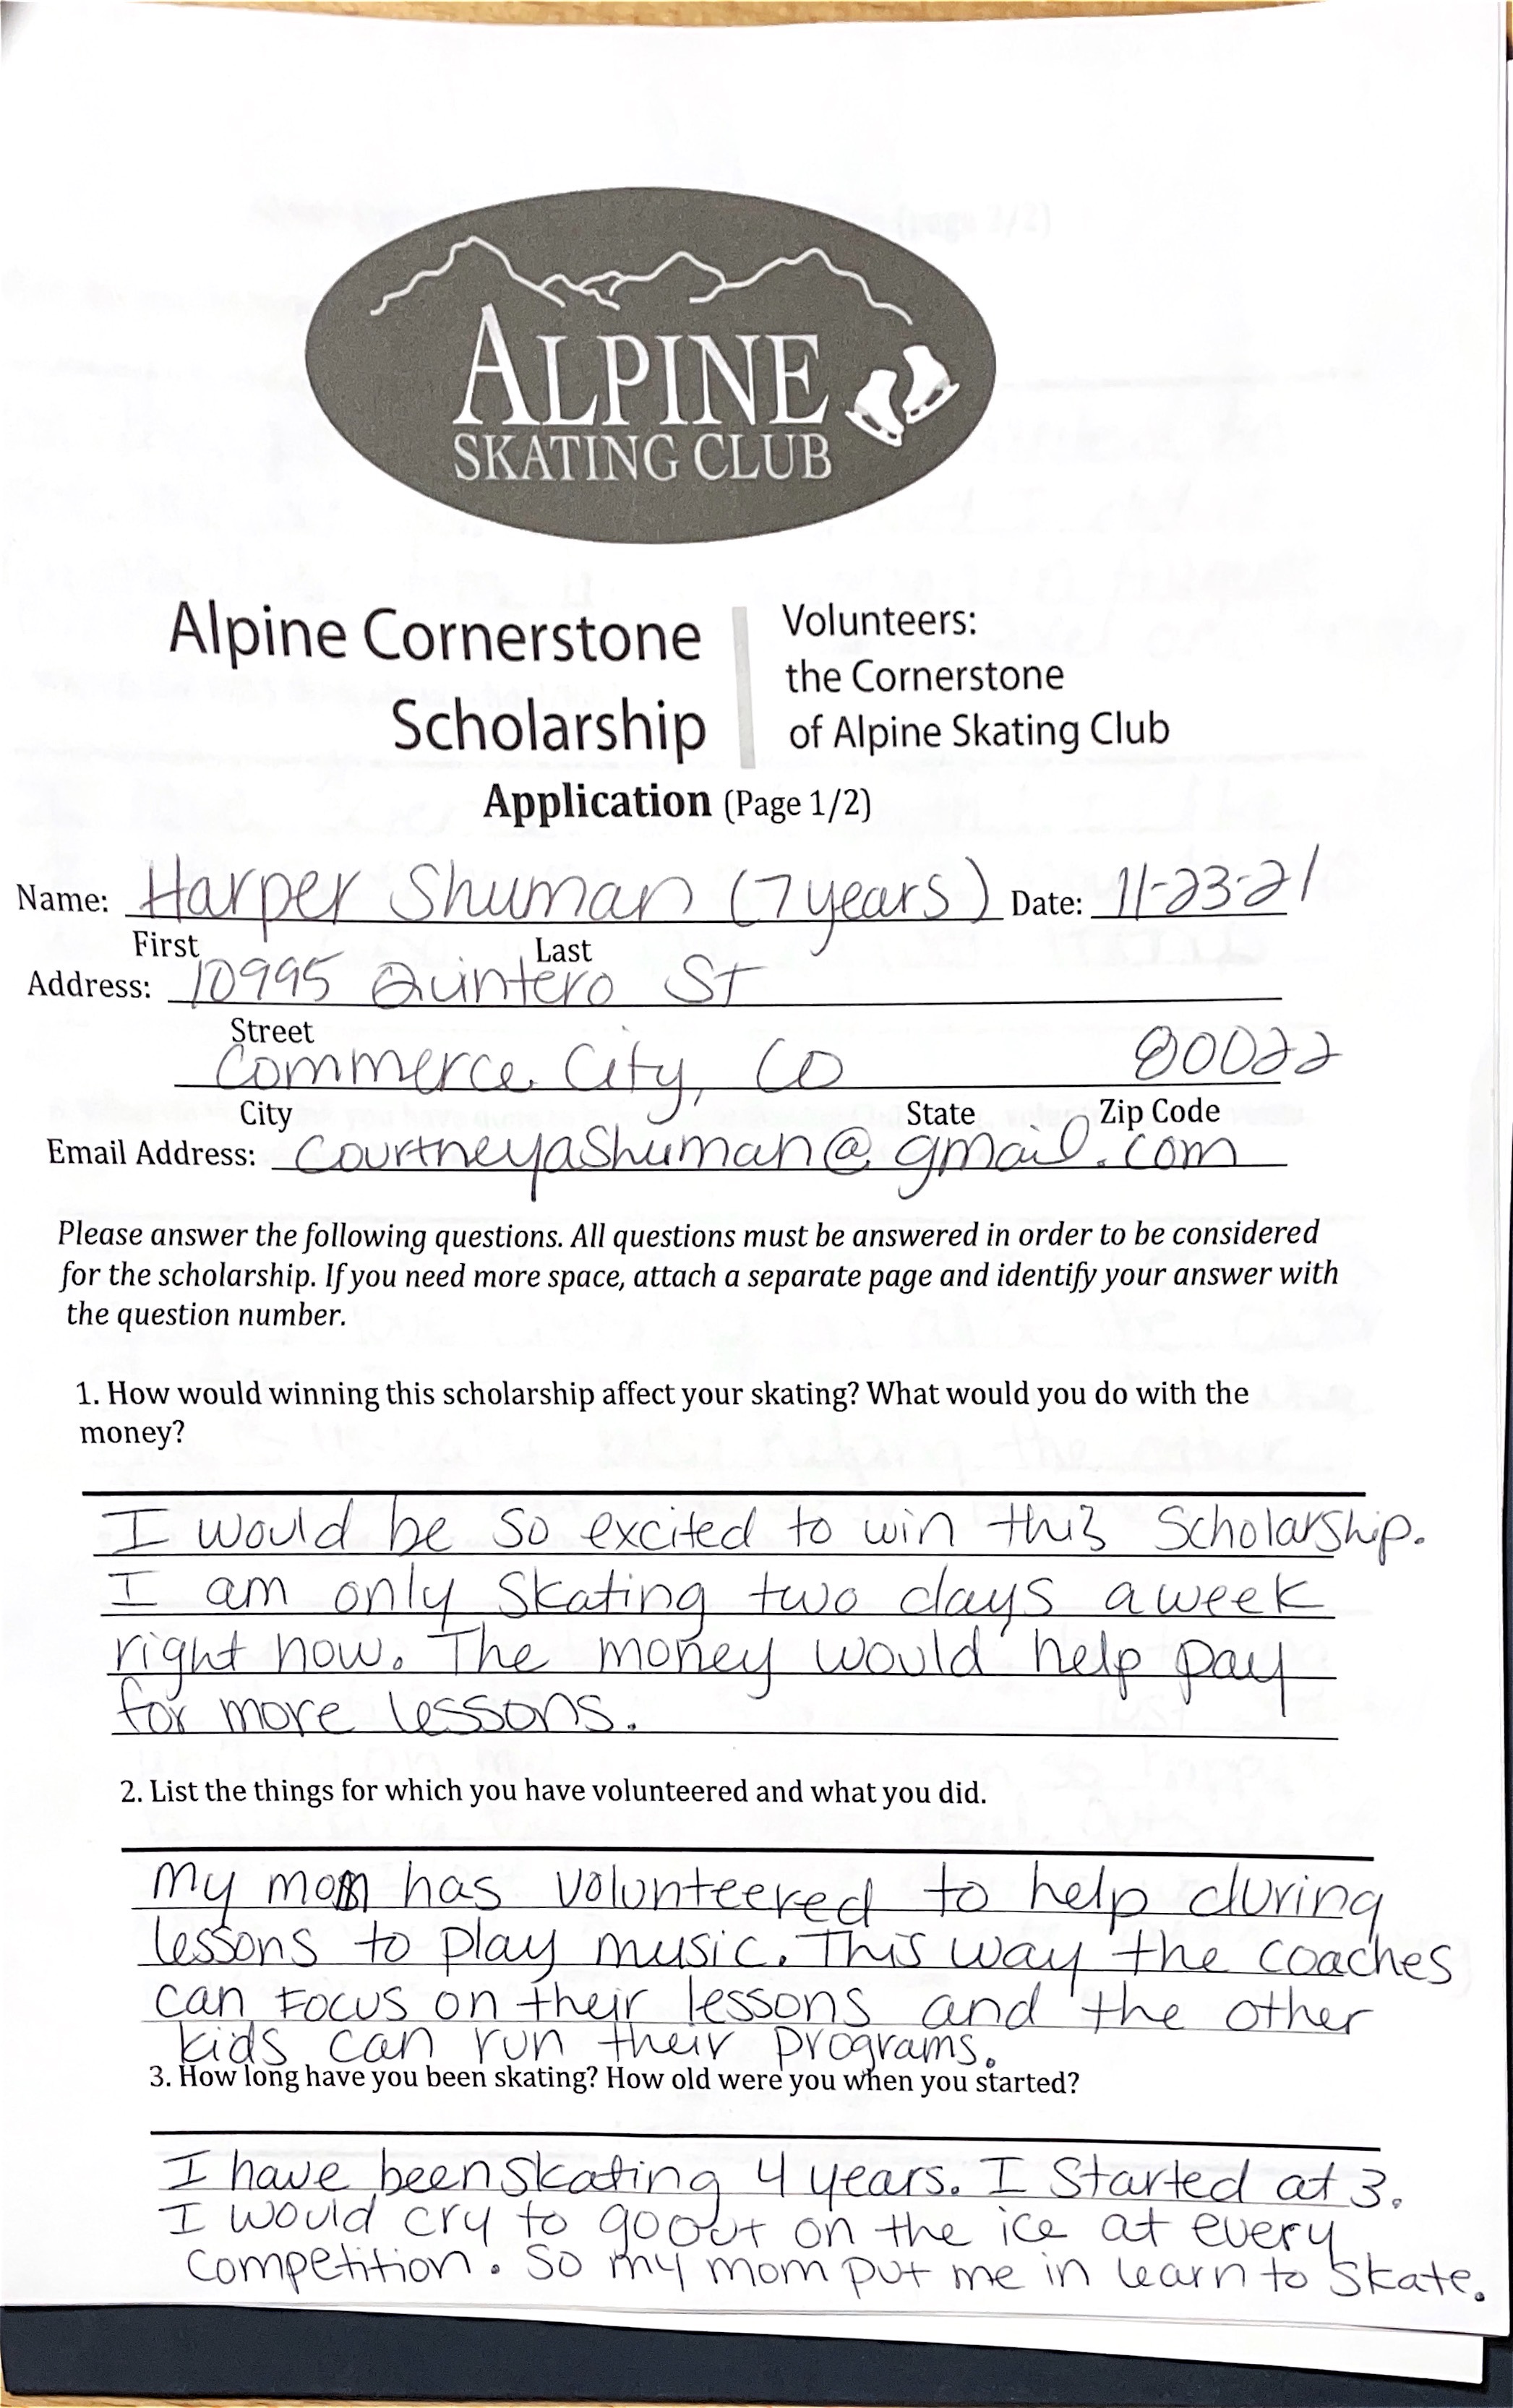 ALPINE
SKATING CLUB
Alpine Cornerstone
Scholarship
Volunteers:
the Cornerstone
of Alpine Skating Club
Application (Page 1/2)
Name: Harper Shuman (7 years) Date: 11-23-21
First Last
Address: 10995 Quintero St
Street
Commerce City, CO 80022
City State Zip Code
Email Address: courtneyashuman@gmail.com
Please answer the following questions. All questions must be answered in order to be considered
for the scholarship. If you need more space, attach a separate page and identify your answer with
the question number.
1. How would winning this scholarship affect your skating? What would you do with the
money?
I would be so excited to win this Scholarship.
I am only skating two days a week
right now. The money would help pay
for more lessons.
2. List the things for which you have volunteered and what you did.
My mom has volunteered to help during
lessons to play music. This way the coaches
can focus on their lessons and the other
kids can run their programs.
3. How long have you been skating? How old were you when you started?
I have been skating 4 years. I started at 3.
I would cry to go out on the ice at every
competition. So my mom put me in learn to skate.